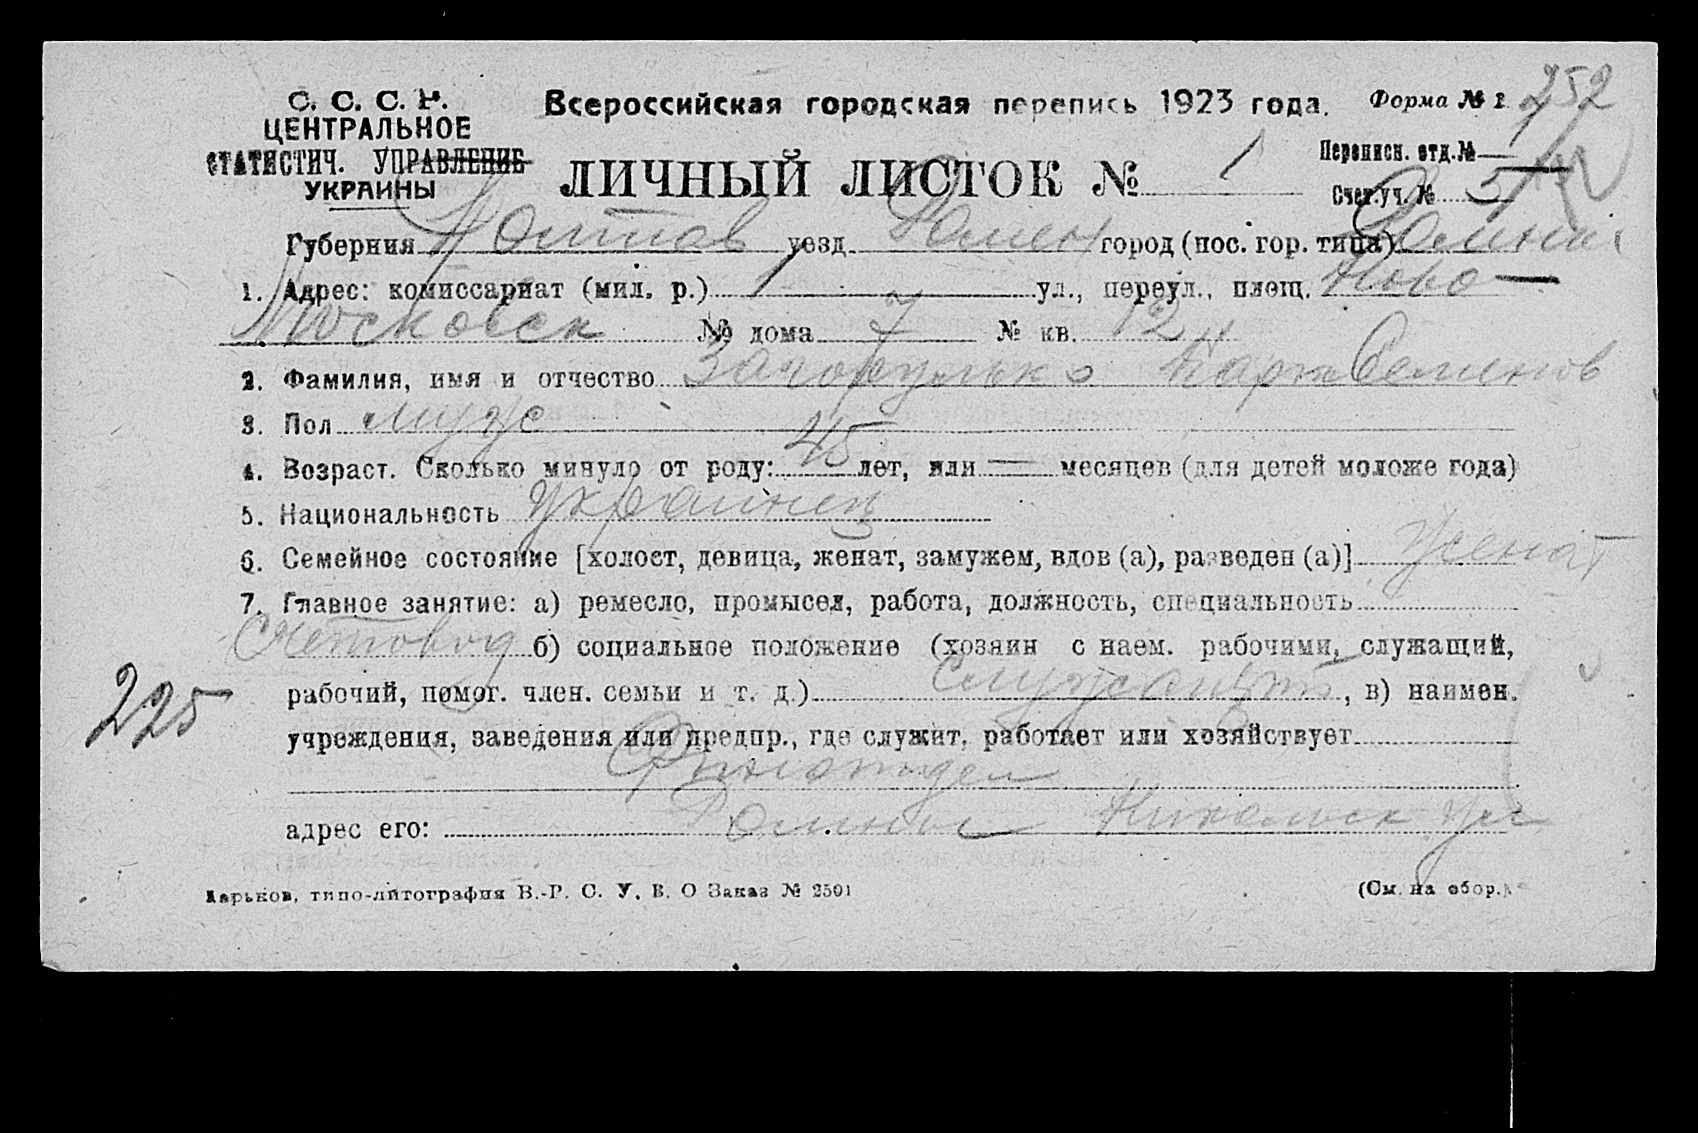 С. С. С. Р.
ЦЕНТРАЛЬНОЕ
СТАТИСТИЧ. УПРАВЛЕНИЕ
УКРАИНЫ
Всероссийская городская перепись 1923 года.
Форма № 1
252
ЛИЧНЫЙ ЛИСТОК № 1
Переписн. отд. № 1
Счет. уч. № 5
Губерния Полтав уезд Ромен город (пос. гор. типа) Ромны
1. Адрес: комиссариат (мил. р.) 1 ул., переул., площ. Ново-
Московск № дома 7 № кв. 12
2. Фамилия, имя и отчество Загорулько Карп Семенов
3. Пол муж
4. Возраст. Сколько минуло от роду: 45 лет, или — месяцев (для детей моложе года)
5. Национальность украинец
6. Семейное состояние [холост, девица, женат, замужем, вдов (а), разведен (а)] Женат
7. Главное занятие: а) ремесло, промысел, работа, должность, специальность
Счетовод б) социальное положение (хозяин с наем. рабочими, служащий,
рабочий, помог. член. семьи и т. д.) Служащий, в) наимен.
225
учреждения, заведения или предпр., где служит, работает или хозяйствует
Финотдел
адрес его: Ромны Никольск ул
Харьков, типо-литография В.-Р. С. У. В. О Заказ № 2501
(См. на обор.)